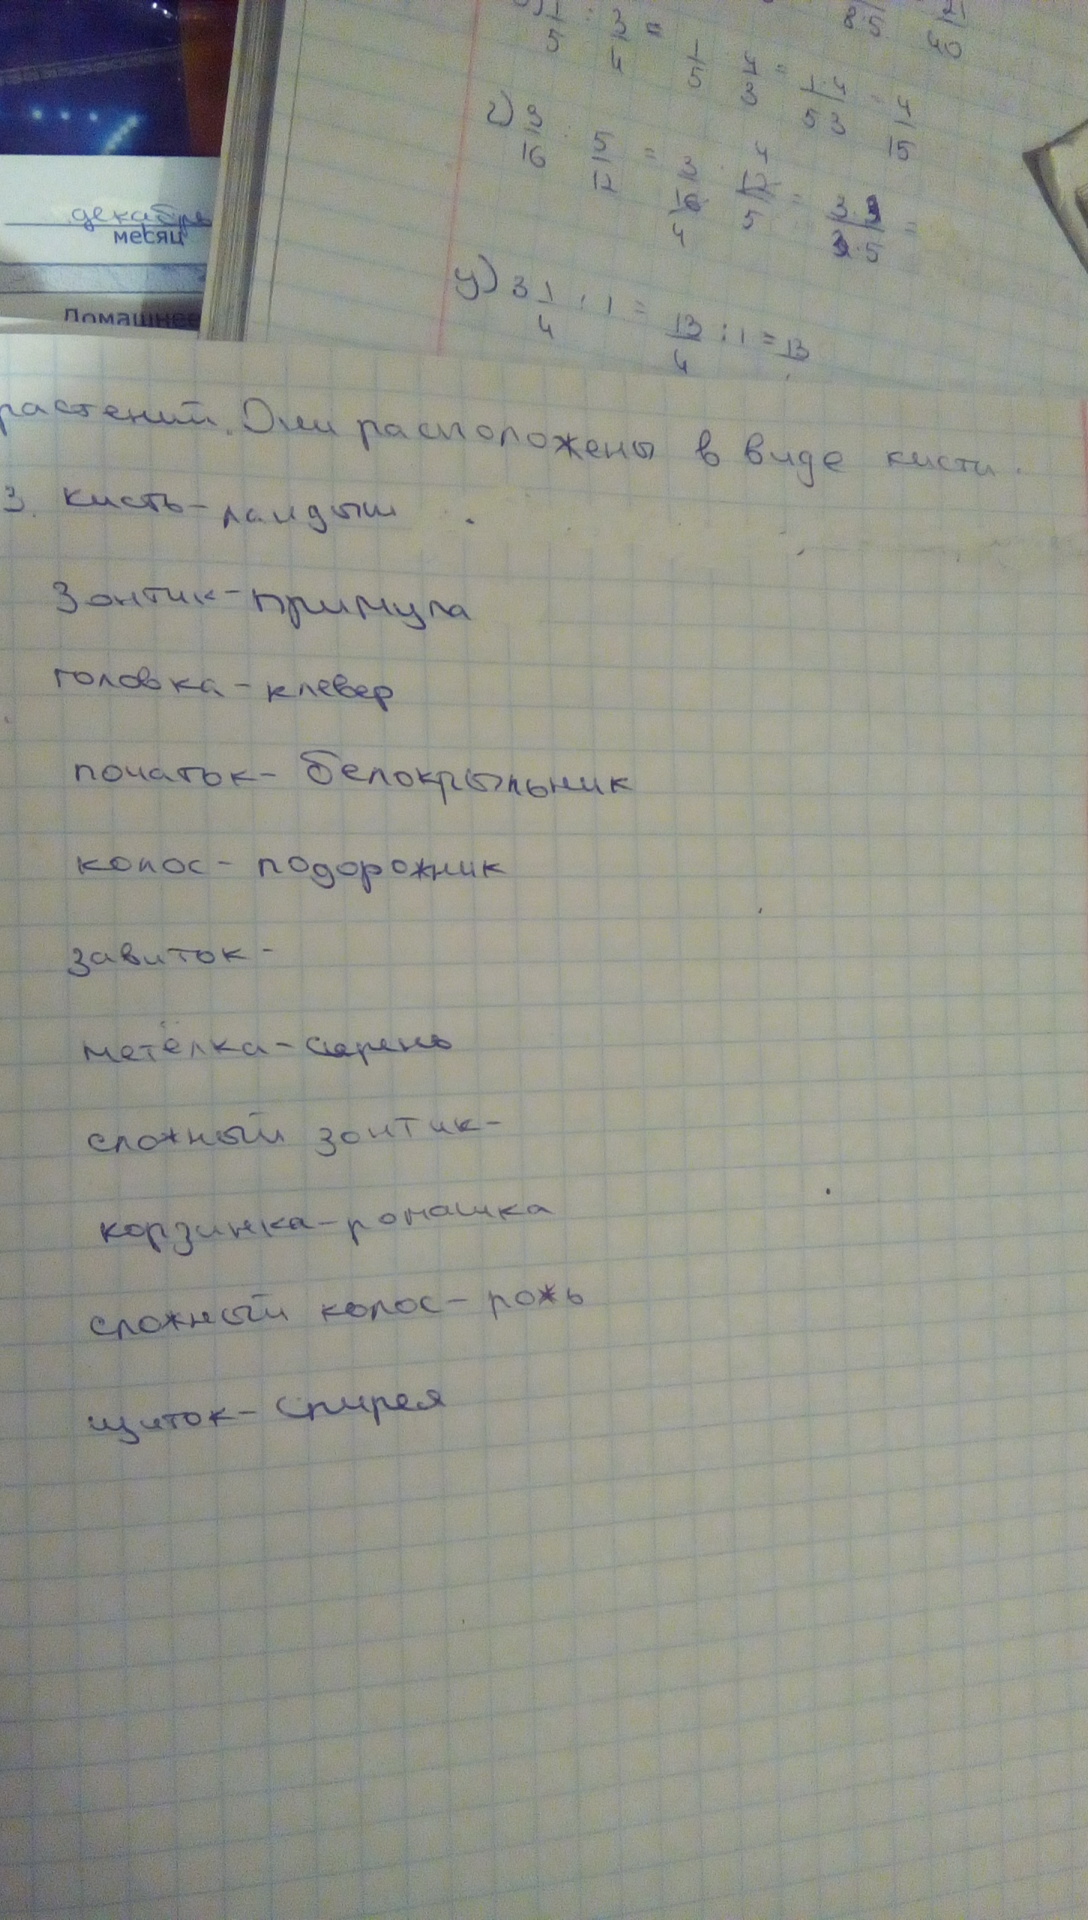 декабрь
месяц
Домашнее
1/5 : 3/4 = 1/5 · 4/3 = 1·4/5·3 = 4/15
г) 3/16 : 5/12 =
у) 3 1/4 : 1 = 13/4 : 1 = 13
растений. Они расположены в виде кисти.
3. кисть - ландыш
Зонтик - примула
головка - клевер
початок - белокрыльник
колос - подорожник
завиток -
метёлка - сирень
сложный зонтик -
корзинка - ромашка
сложный колос - рожь
щиток - спирея